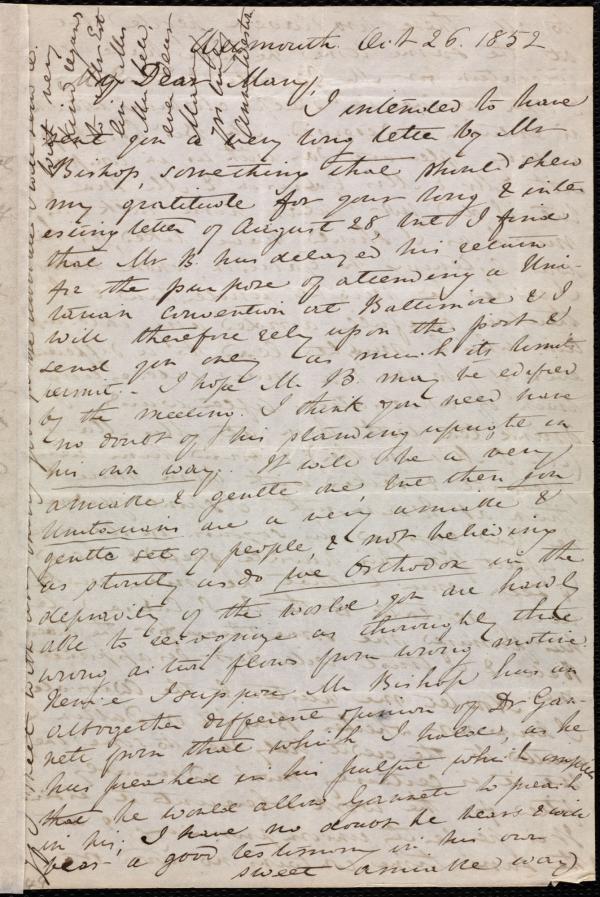 Weymouth. Oct 26. 1852
My Dear Mary,
I intended to have
sent you a very long letter by Mr
Bishop, something that should shew
my gratitude for your long & inter
esting letter of August 28, but I find
that Mr B. has delayed his return
for the purpose of attending a Uni-
tarian Convention at Baltimore & I
will therefore rely upon the post &
send you only as much as its limits
permit - I hope Mr B. may be edified
by the meeting. I think you need have
no doubt of his standing upright in
his own way. It will be a very
amiable & gentle one, but then you
Unitarians are a very amiable &
gentle set of people, & not believing
as stoutly as do we Orthodox in the
depravity of the world you are hardly
able to recognize as thoroughly that
wrong action flows from wrong motive.
Hence I suppose Mr Bishop has an
altogether different opinion of Dr Gan-
nett from that which I hold, as he
has preached in his pulpit which implies
that he would allow Gannett to preach
in his; I have no doubt he bears & will
bear a good testimony in his own
sweet amiable way)
with very
kind regards
to Mr Est
lin Mr
ever
your
Anne Weston